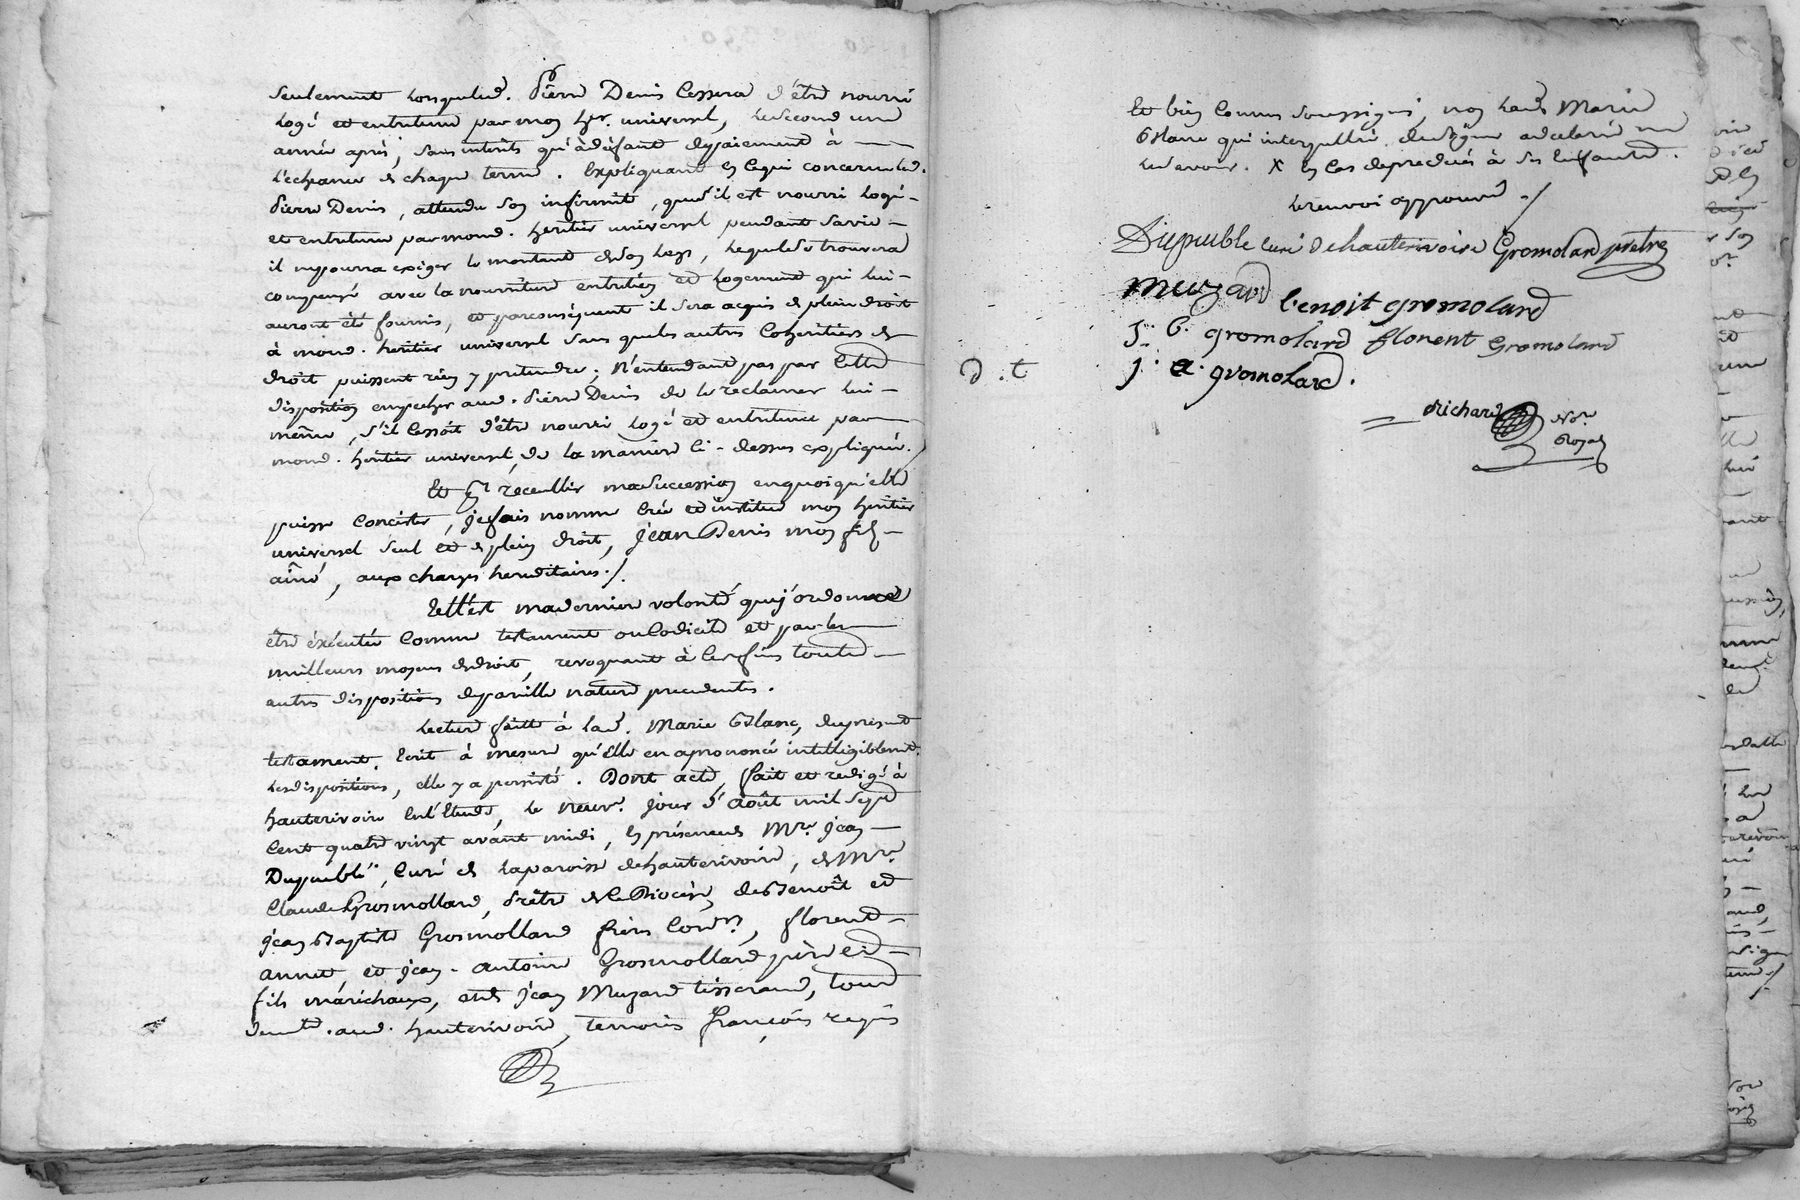 seulement lorsque led. Pierre Denis cessera d'être nourri
logé et entretenu par mon hér. universel, le second une
année après, sans interêts qu'à défaut de paiement à
l'echeance de chaque terme. Expliquant en ce qui concerne led.
Pierre Denis, attendu son infirmité, que s'il est nourri logé
et entretenu par mond. heritier universel pendant sa vie
il ne pourra exiger le montant de son legs, lequel se trouvera
compensé avec la nourriture entretien et logement qui lui
auront été fournis, et par conséquent il sera acquis de plein droit
à mond. heritier universel sans que les autres coheritiers de
droit puissent rien y pretendre; N'entendant pas par cette
disposition empecher aud. Pierre Denis de le reclamer lui
même, s'il cessoit d'être nourri logé et entretenu par
mond. heritier universel, de la maniere ci-dessus expliquée.
Et pr. recueillir ma succession en quoi qu'elle
puisse concister, je fais nomme crée et institue mon heritier
universel seul et de plein droit, jean Denis mon fils
aîné, aux charges hereditaires./.
telle est ma derniere volonté que j'ordonne
être éxécutée comme testament ou codicile et par les
meilleurs moyens de droit, revoquant à ces fins toutes
autres dispositions de pareille nature precedentes.
Lecture faitte à lad. Marie Blanc, du présent
testament, Ecrit à mesure qu'Elle en a prononcé intelligiblement
les dispositions, elle y a persisté. Dont acte, fait et redigé à
hauterivoire en l'Etude, le neuv. jour d'août mil sept
cent quatre vingt avant midi, en présence de Mre. jean
Dupeuble, curé de la paroisse de hauterivoire, de Mre.
Claude Grosmollard, prêtre de ce Diocèse, de Benoît et
jean Baptiste Grosmollard freres cord.rs, florent
annet, et jean-antoine Grosmollard père et
fils maréchaux, et de jean Muzard tisserand, tous
demt. aud. hauterivoire, temoins françois requis
Et bien connus soussignés, non lad. Marie
Blanc qui interpellée de signer a declaré ne
le savoir. X en cas de predecés à ses enfants.
le renvoi approuvé ./
Dupeuble curé de hauterivoire Gromolard prêtre
muzard benoit gromolard
J. B. gromolard florent Gromolard
D. t
j. a. gromolard.
Richard Nre.
Royal